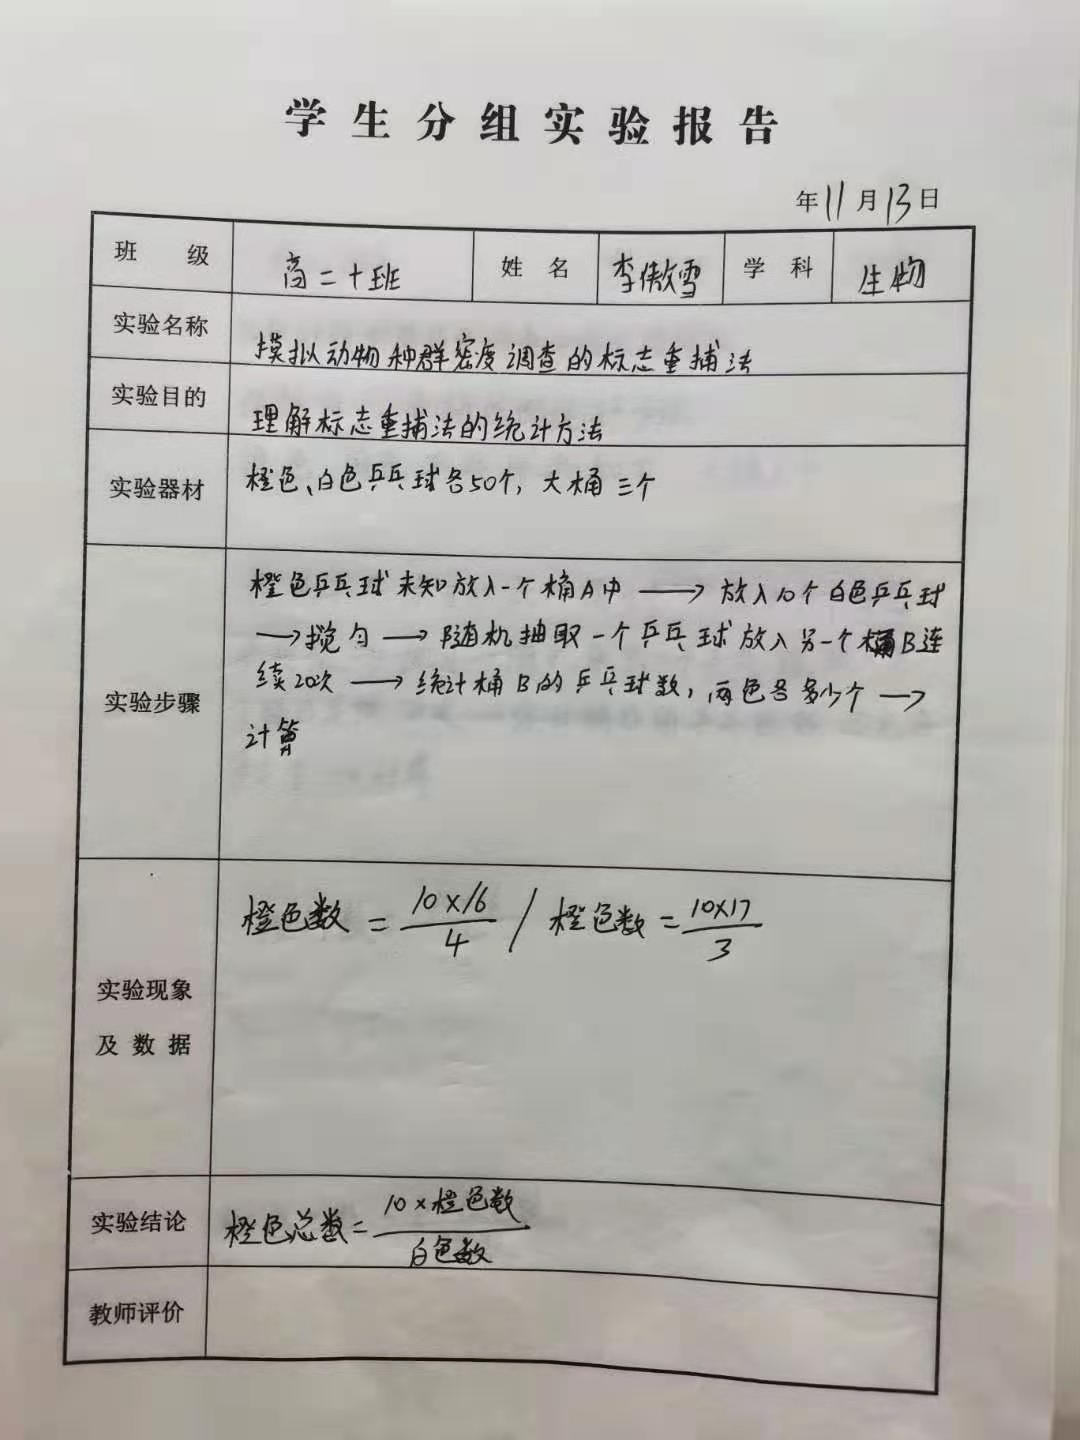 学生分组实验报告
年11月13日
班 级 高二十班 姓 名 李傲雪 学 科 生物
实验名称 模拟动物种群密度调查的标志重捕法
实验目的 理解标志重捕法的统计方法
实验器材 橙色、白色乒乓球各50个，大桶三个
橙色乒乓球未知放入一个桶A中 → 放入10个白色乒乓球
→搅匀 → 随机抽取一个乒乓球放入另一个桶B连
实验步骤 续20次 → 统计桶B的乒乓球数，两色各多少个 →
计算
橙色数 = 10×16/4 / 橙色数 = 10×17/3
实验现象
及 数 据
实验结论 橙色总数 = 10×橙色数/白色数
教师评价